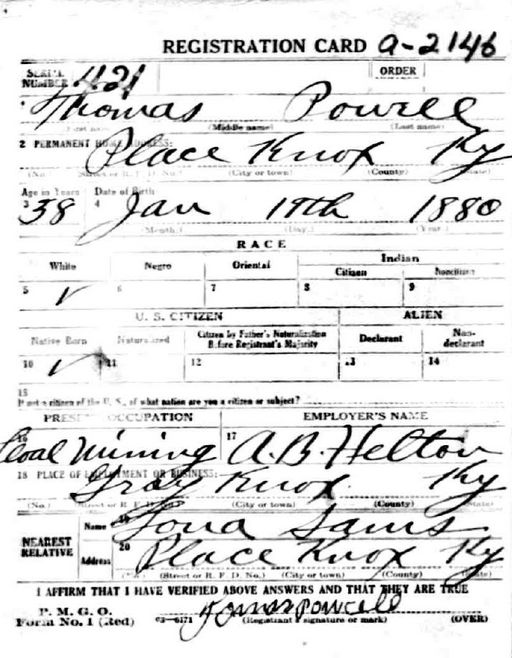 REGISTRATION CARD a-2146
SERIAL NUMBER 421 ORDER
1 Thomas Powell
(First name) (Middle name) (Last name)
2 PERMANENT HOME ADDRESS:
Place Knox Ky
(No.) (Street or R. F. D. No.) (City or town) (County) (State)
Age in Years Date of Birth
3 38 4 Jan 19th 1880
(Month.) (Day.) (Year.)
RACE
White Negro Oriental Indian
Citizen Noncitizen
5 ✓ 6 7 8 9
U. S. CITIZEN ALIEN
Native Born Naturalized Citizen by Father's Naturalization Before Registrant's Majority Declarant Non-declarant
10 ✓ 11 12 13 14
15
If not a citizen of the U. S., of what nation are you a citizen or subject?
PRESENT OCCUPATION EMPLOYER'S NAME
16 Coal Mining 17 A.B. Helton
18 PLACE OF EMPLOYMENT OR BUSINESS:
Gray Knox Ky
(No.) (Street or R. F. D. No.) (City or town) (County) (State)
NEAREST RELATIVE Name 19 Sams
Address 20 Place Knox Ky
(No.) (Street or R. F. D. No.) (City or town) (County) (State)
I AFFIRM THAT I HAVE VERIFIED ABOVE ANSWERS AND THAT THEY ARE TRUE
P. M. G. O.
Form No. 1 (Red) 03-6171 (Registrant's signature or mark) (OVER)